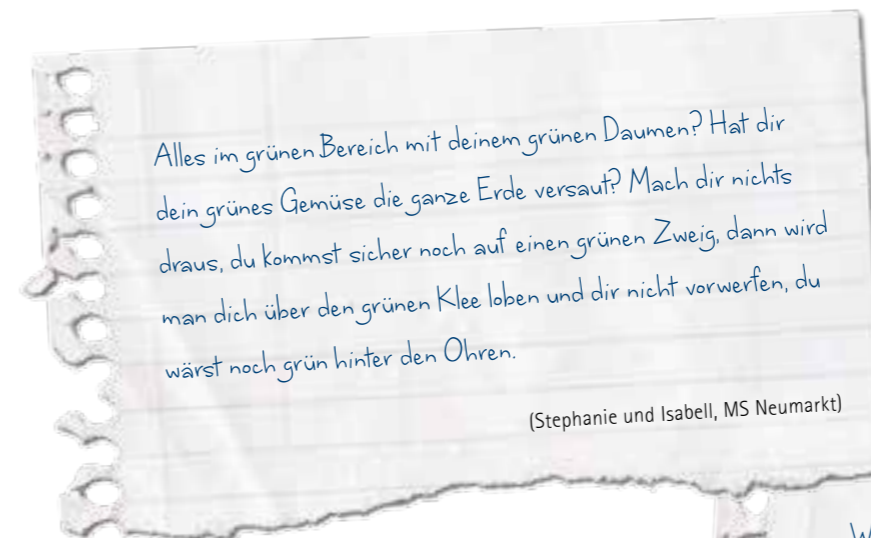 Alles im grünen Bereich mit deinem grünen Daumen? Hat dir
dein grünes Gemüse die ganze Erde versaut? Mach dir nichts
draus, du kommst sicher noch auf einen grünen Zweig, dann wird
man dich über den grünen Klee loben und dir nicht vorwerfen, du
wärst noch grün hinter den Ohren.
(Stephanie und Isabell, MS Neumarkt)